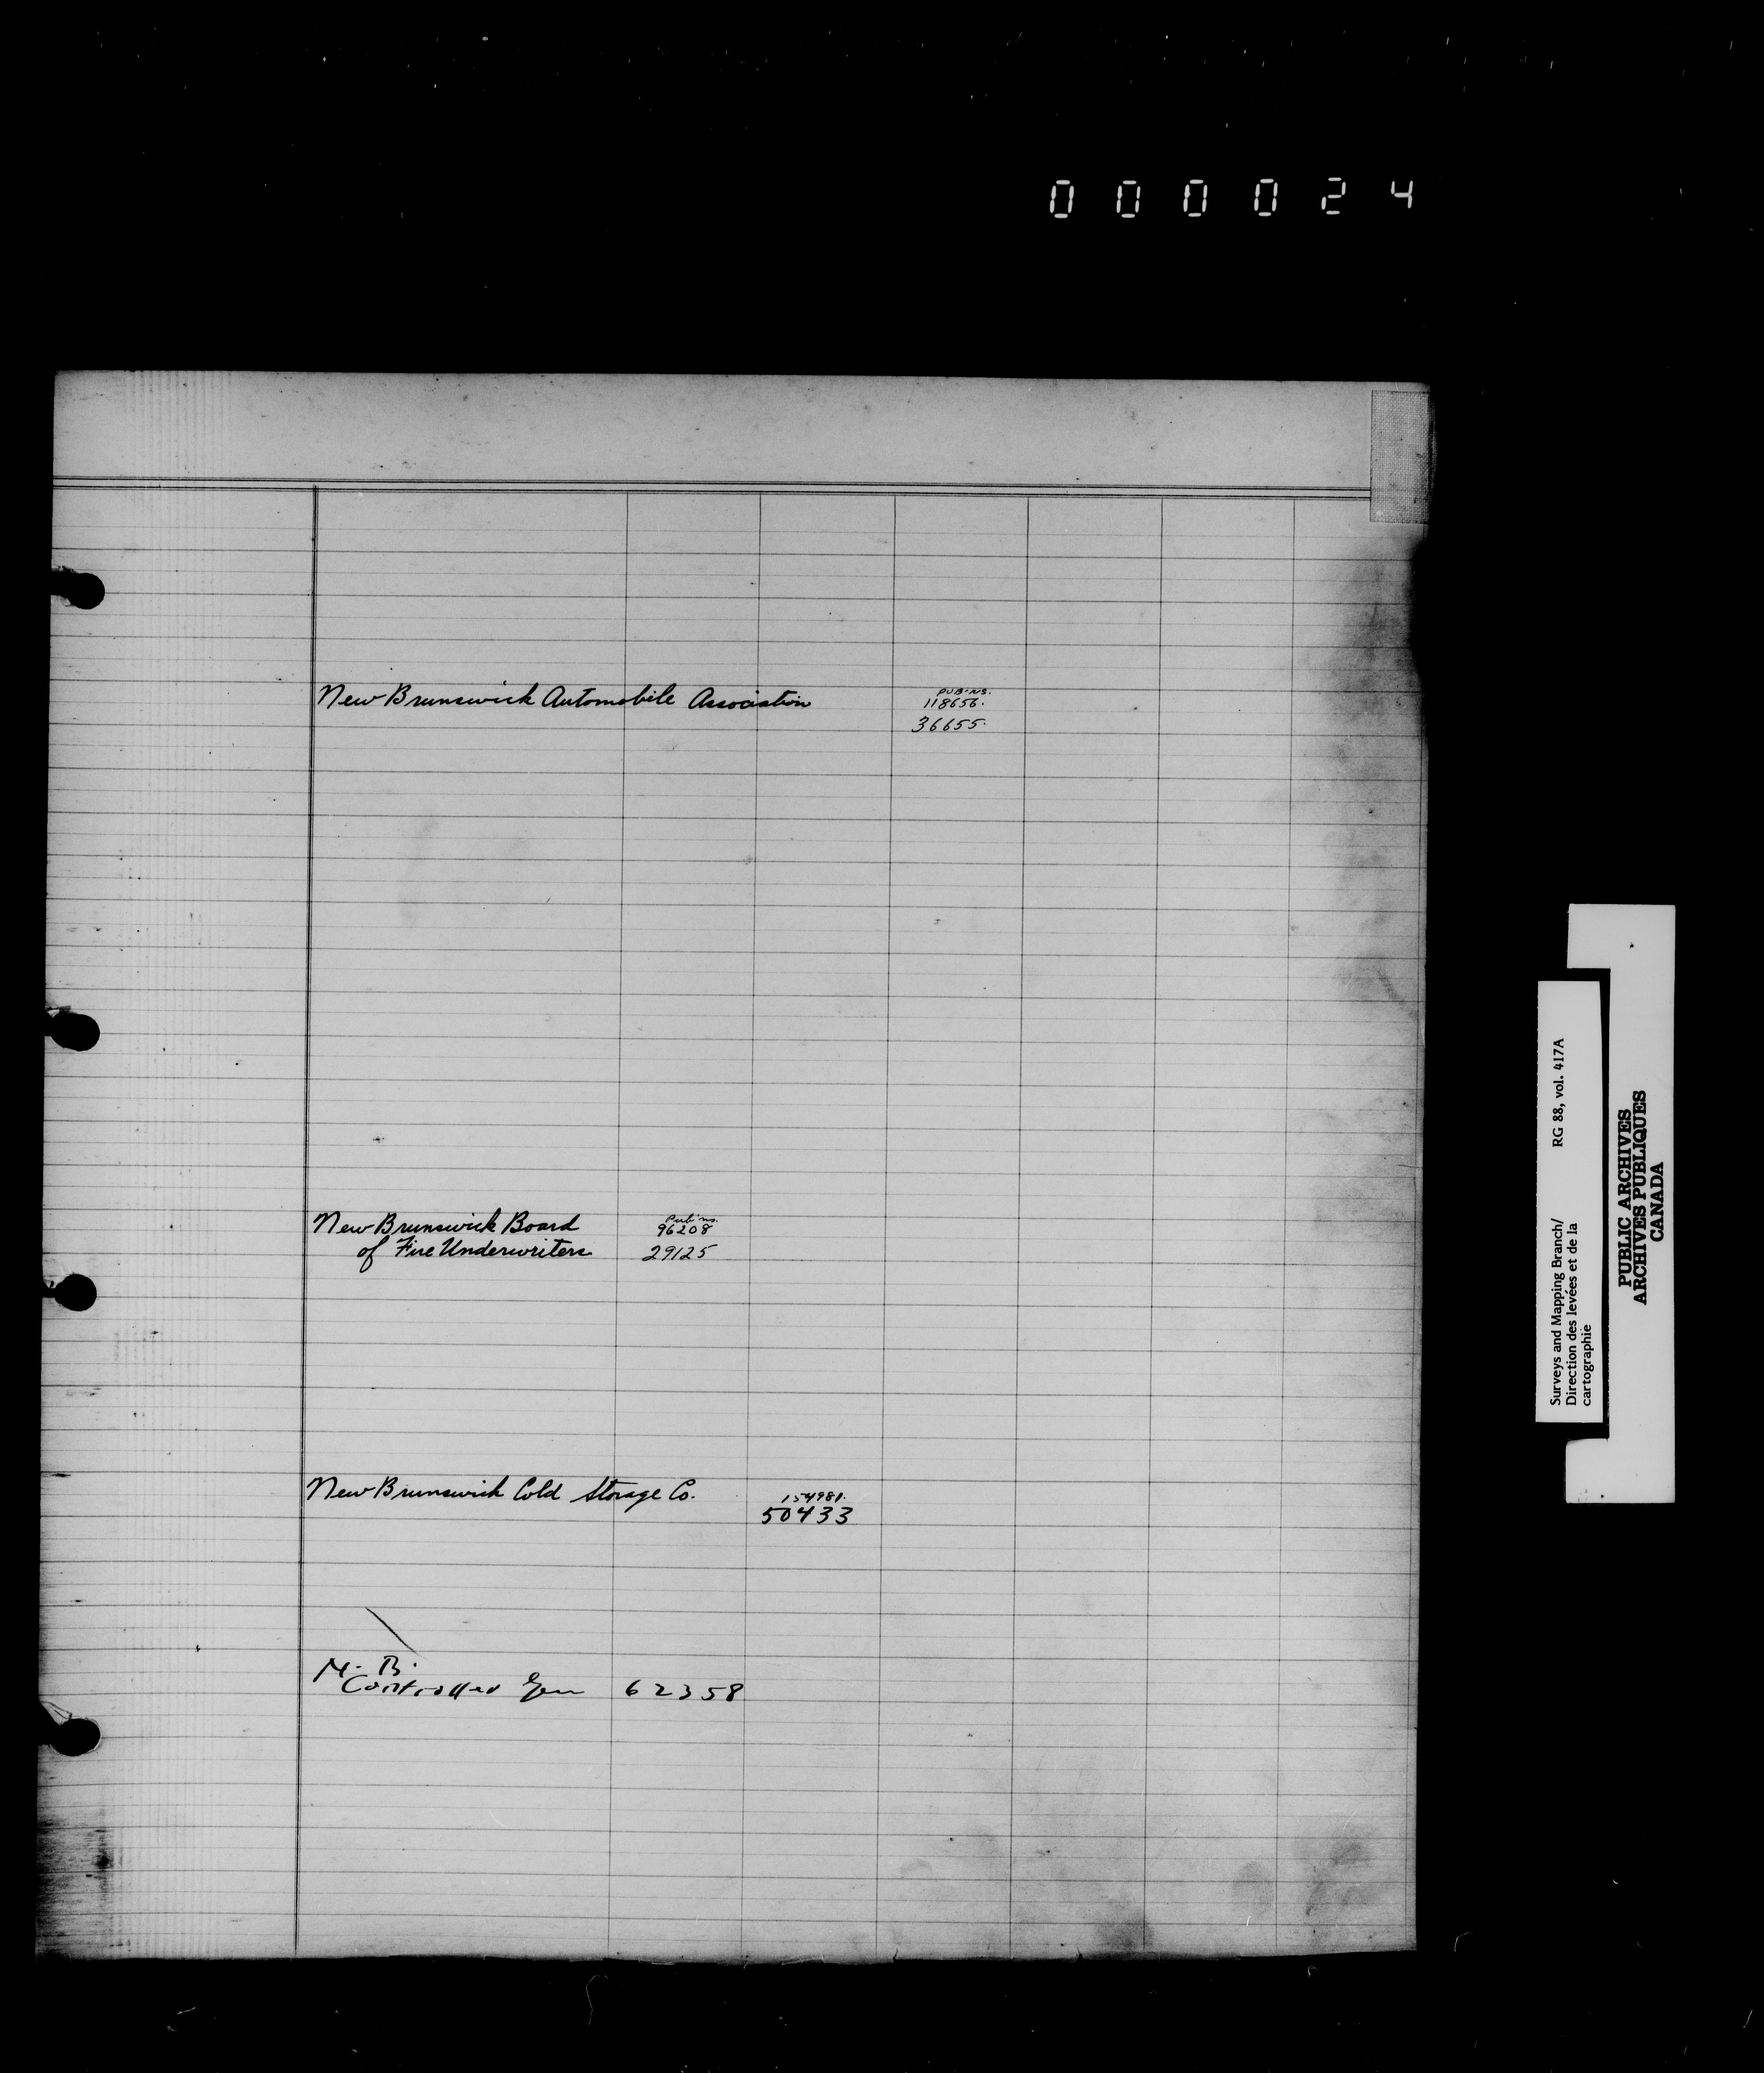 000024
New Brunswick Automobile Association
PUB'NS.
118656.
36655.
New Brunswick Board
of Fire Underwriters
Pub'ns.
96208
29125
New Brunswick Cold Storage Co.
154981.
50433
N. B.
Controller Gen 62358
Surveys and Mapping Branch/ RG 88, vol. 417A
Direction des levées et de la
cartographie
PUBLIC ARCHIVES
ARCHIVES PUBLIQUES
CANADA